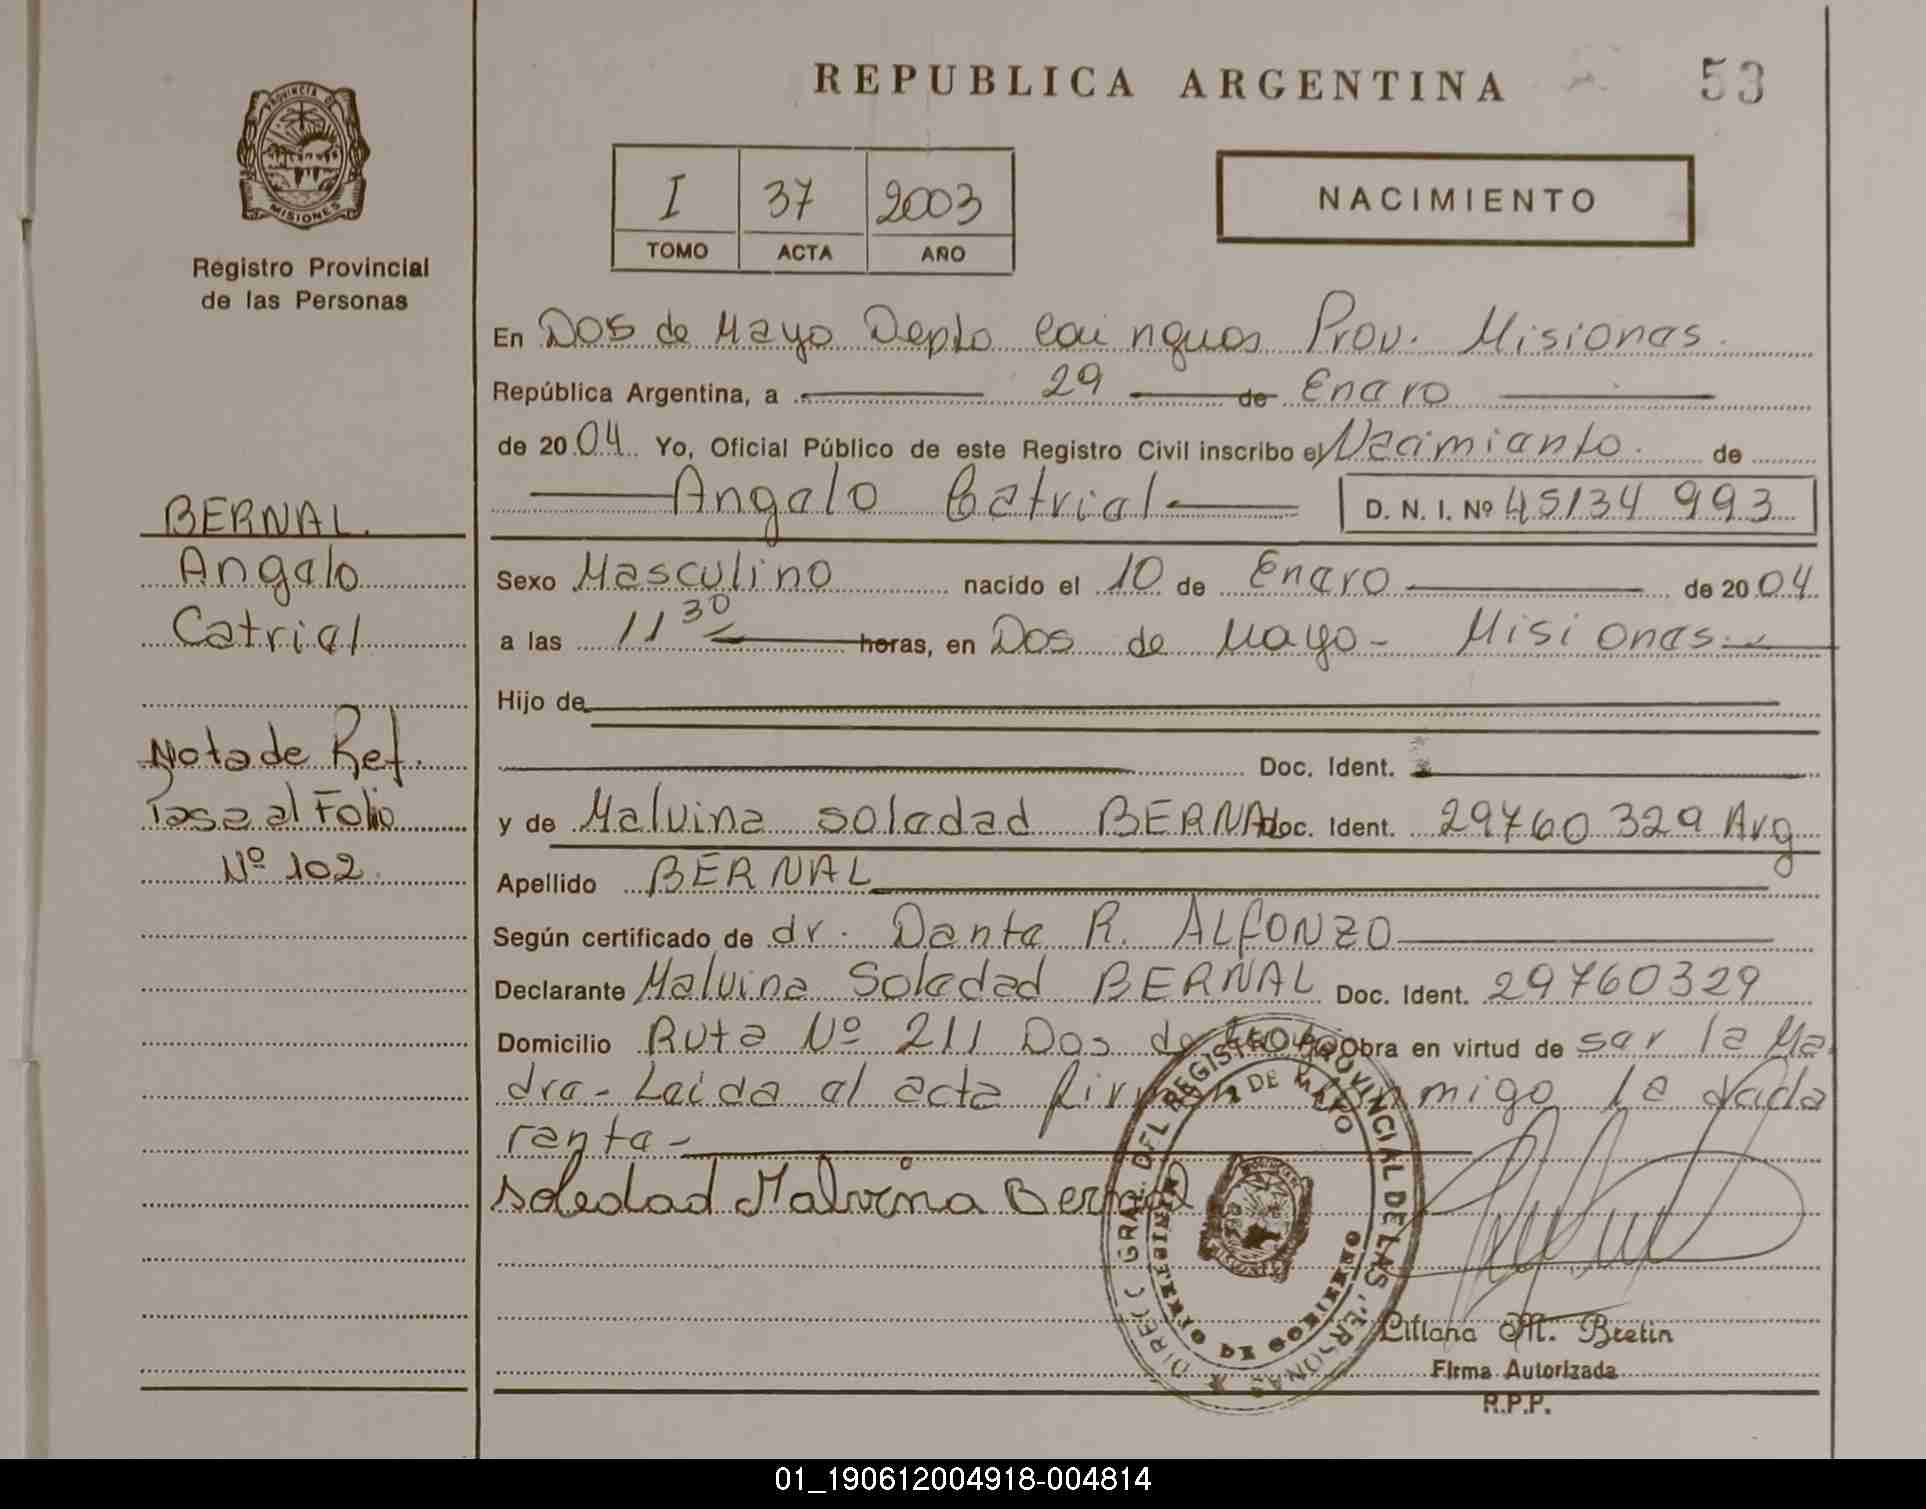 REPUBLICA ARGENTINA
53
PROVINCIA DE
MISIONES
Registro Provincial
de las Personas
I 37 2003
TOMO ACTA AÑO
NACIMIENTO
En Dos de Mayo Depto Cainguas Prov. Misiones.
República Argentina, a 29 de Enero
de 2004 Yo, Oficial Público de este Registro Civil inscribo el Nacimiento. de
Angelo Catriel D. N. I. Nº 45134 993
BERNAL.
Angelo
Catriel
Nota de Ref.
Pasa al Folio
Nº 102.
Sexo Masculino nacido el 10 de Enero de 2004
a las 11 30 horas, en Dos de Mayo - Misiones
Hijo de
Doc. Ident.
y de Malvina Soledad BERNAL Doc. Ident. 29760329 Arg
Apellido BERNAL
Según certificado de dr. Dante R. ALFONZO
Declarante Malvina Soledad BERNAL Doc. Ident. 29760329
Domicilio Ruta Nº 211 Dos de Mayo Obra en virtud de ser la Ma
dre - Leida el acta conmigo la decla
rante -
soledad Malvina Bernal
DIREC. GRAL. DEL REGISTRO PROVINCIAL DE LAS PERSONAS
2 DE MAYO
MINISTERIO DE GOBIERNO
Liliana M. Bretin
Firma Autorizada
R.P.P.
01_190612004918-004814